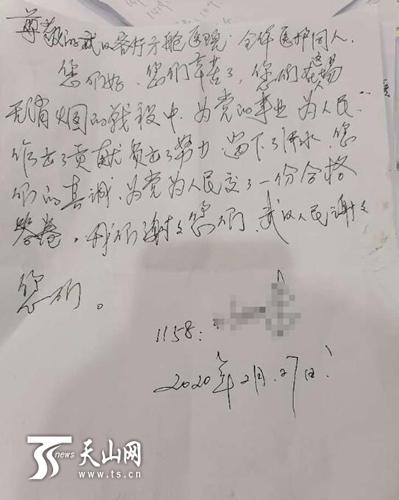 尊敬的武汉客厅方舱医院全体医护同人.
您们好、您们辛苦了,您们在这场
无消烟的战役中、为党的事业为人民
作出了贡献 努力 留下了汗水、您
们的 为党为人民交了一份合格
答卷。我们谢谢您们 武汉人民谢谢
您们。
1158:
2020年2月.27日
TS news 天山网
www.ts.cn